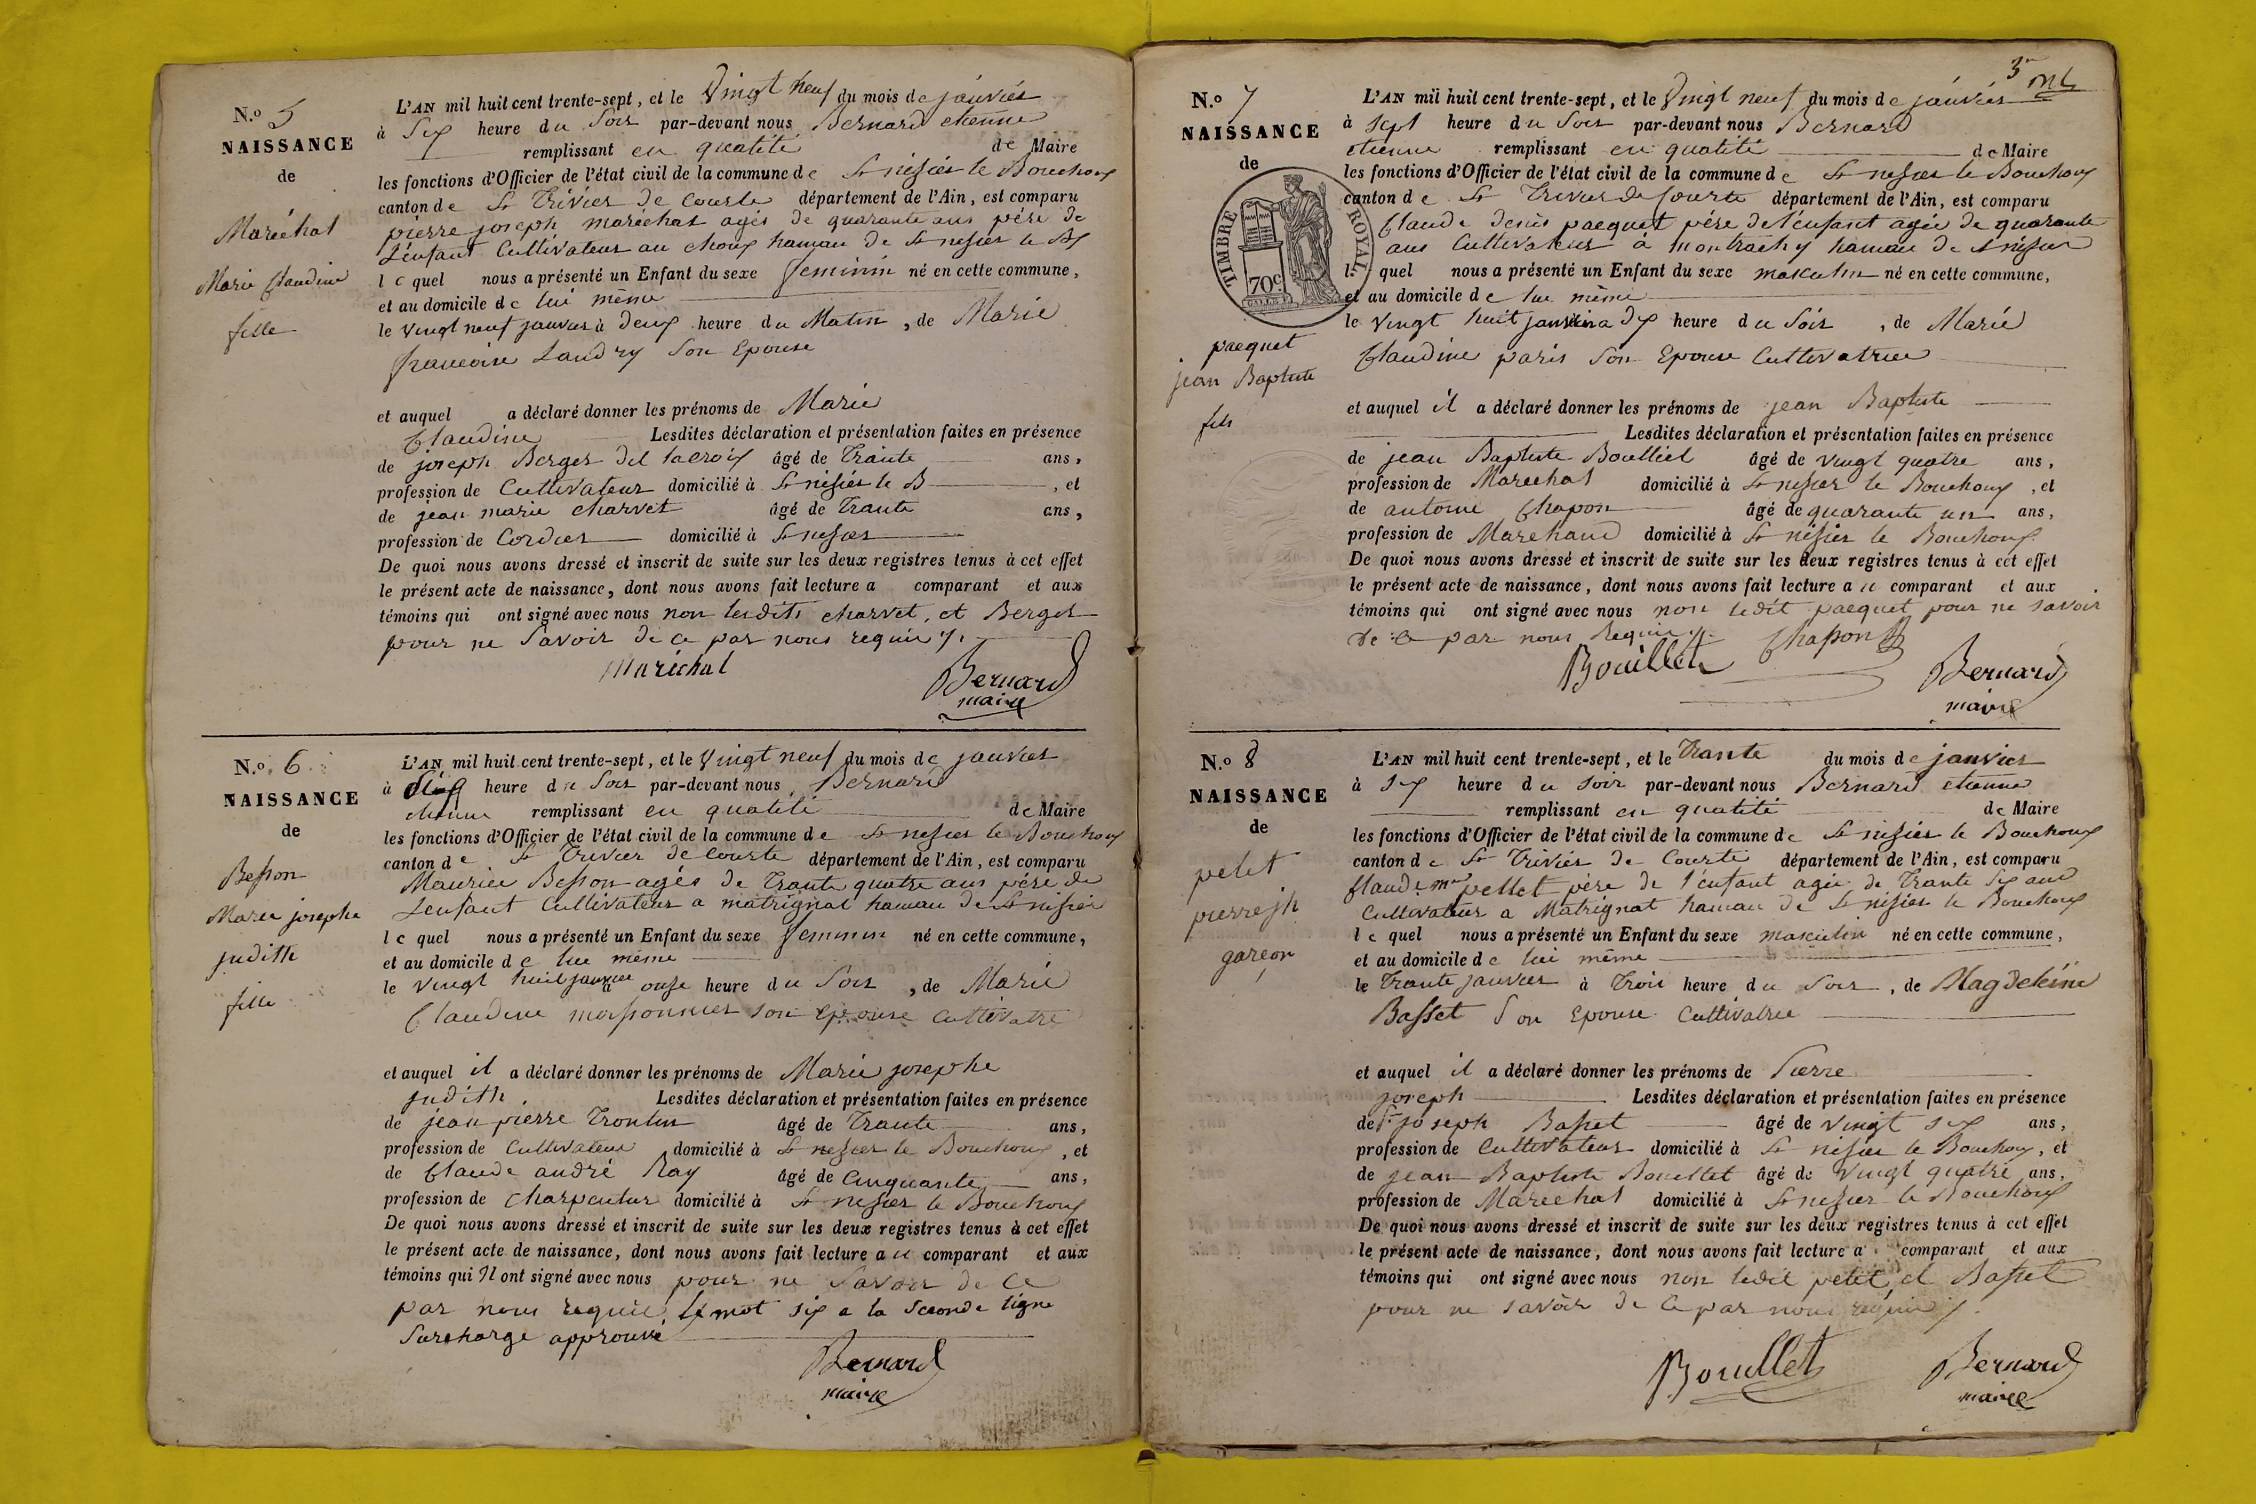 N.o 5
NAISSANCE
de
Maréchal
Marie Claudine
fille
L'AN mil huit cent trente-sept, et le Vingt neuf du mois de janviér
à Six heure du Soir par-devant nous Bernard etienne
remplissant en qualité de Maire
les fonctions d'Officier de l'état civil de la commune de St nésiér le Bouchoux
canton de St Triviér de Courte département de l'Ain, est comparu
pierre joseph maréchal agés de quarante ans pére de
L'enfant Cultivateur au choux hamau de St nesiér le Bx
le quel nous a présenté un Enfant du sexe feminin né en cette commune,
et au domicile de lui même
le vingt neuf janvier à deux heure du Matin, de Marie
francoise Landry Son Epouse
et auquel a déclaré donner les prénoms de Marie
Claudine Lesdites déclaration et présentation faites en présence
de joseph Berger dit lacroix âgé de Trante ans,
profession de Cultivateur domicilié à St nésiér le B , et
de jean marie charvet âgé de Trante ans,
profession de Cordier domicilié à St nesier
De quoi nous avons dressé et inscrit de suite sur les deux registres tenus à cet effet
le présent acte de naissance, dont nous avons fait lecture a comparant et aux
témoins qui ont signé avec nous non lesdits charvet, et Berger
pour ne Savoir de ce par nous requis
maréchal
Bernard
maire
N.o 6
NAISSANCE
de
Besson
Marie josephe
judith
fille
L'AN mil huit cent trente-sept, et le Vingt neuf du mois de janvier
à Six heure du Soir par-devant nous Bernard
etienne remplissant en qualité de Maire
les fonctions d'Officier de l'état civil de la commune de St nesier le Bouchoux
canton de St Trivier de Courte département de l'Ain, est comparu
Maurice Besson agés de Trante quatre ans pére de
L'enfant Cultivateur a matrignat hamau de St nisiér
le quel nous a présenté un Enfant du sexe feminin né en cette commune,
et au domicile de lui même
le vingt huit janvier à onze heure du Soir, de Marie
Claudine moissonnier son Epouse Cultivatre
et auquel il a déclaré donner les prénoms de Marie josephe
judith Lesdites déclaration et présentation faites en présence
de jean pierre Trontin âgé de Trante ans,
profession de Cultivateur domicilié à St nesier le Bouchoux , et
de Claude andré Ray âgé de Cinquante ans,
profession de Charpentier domicilié à St nesier le Bouchoux
De quoi nous avons dressé et inscrit de suite sur les deux registres tenus à cet effet
le présent acte de naissance, dont nous avons fait lecture au comparant et aux
témoins qui N ont signé avec nous pour ne Savoir de Ce
par nous requis. Le mot six a la Seconde ligne
Surcharge approuvé
Bernard
maire
3e
N.o 7
NAISSANCE
de
TIMBRE ROYAL
70c
pacquet
jean Baptiste
fils
L'AN mil huit cent trente-sept, et le Vingt neuf du mois de janviér
à Sept heure du Soir par-devant nous Bernard
etienne remplissant en qualité de Maire
les fonctions d'Officier de l'état civil de la commune de St nesier le Bouchoux
canton de St Trivier de Courte département de l'Ain, est comparu
Claude denis pacquet pére de l'enfant agée de quarante
ans Cultivateur a montrachy hamau de St nésier
le quel nous a présenté un Enfant du sexe masculin né en cette commune,
et au domicile de lui même
le vingt huit janvier a dix heure du Soir , de Marie
Claudine paris Son Epouse Cultivatrice
et auquel il a déclaré donner les prénoms de jean Baptiste
Lesdites déclaration et présentation faites en présence
de jean Baptiste Bouillet âgé de vingt quatre ans,
profession de Marechal domicilié à St nesier le Bouchoux , et
de antoine Chapon âgé de quarante un ans,
profession de Marchand domicilié à St nésier le Bouchoux
De quoi nous avons dressé et inscrit de suite sur les deux registres tenus à cet effet
le présent acte de naissance, dont nous avons fait lecture au comparant et aux
témoins qui ont signé avec nous non ledit pacquet pour ne savoir
de ce par nous Requis
Bouillet Chapon
Bernard
maire
N.o 8
NAISSANCE
de
petet
pierre jh
garçon
L'AN mil huit cent trente-sept, et le Trante du mois de janvier
à six heure du soir par-devant nous Bernard etienne
remplissant en qualité de Maire
les fonctions d'Officier de l'état civil de la commune de St nésier le Bouchoux
canton de St Triviér de Courte département de l'Ain, est comparu
Claude mie pellet pére de l'enfant agée de Trante Six ans
Cultivateur a Matrignat hamau de St nésier le Bouchoux
le quel nous a présenté un Enfant du sexe masculin né en cette commune,
et au domicile de lui même
le Trante janvier à Trois heure du Soir , de Magdeleine
Basset Son Epouse Cultivatrice
et auquel il a déclaré donner les prénoms de Pierre
joseph Lesdites déclaration et présentation faites en présence
de joseph Basset âgé de vingt six ans,
profession de Cultivateur domicilié à St nésier le Bouchoux, et
de jean Baptiste Bouillet âgé de vingt quatre ans,
profession de Marechal domicilié à St nesier le Bouchoux
De quoi nous avons dressé et inscrit de suite sur les deux registres tenus à cet effet
le présent acte de naissance, dont nous avons fait lecture a comparant et aux
témoins qui ont signé avec nous non ledit petet et Basset
pour ne savoir de Ce par nous requis
Bouillet
Bernard
maire